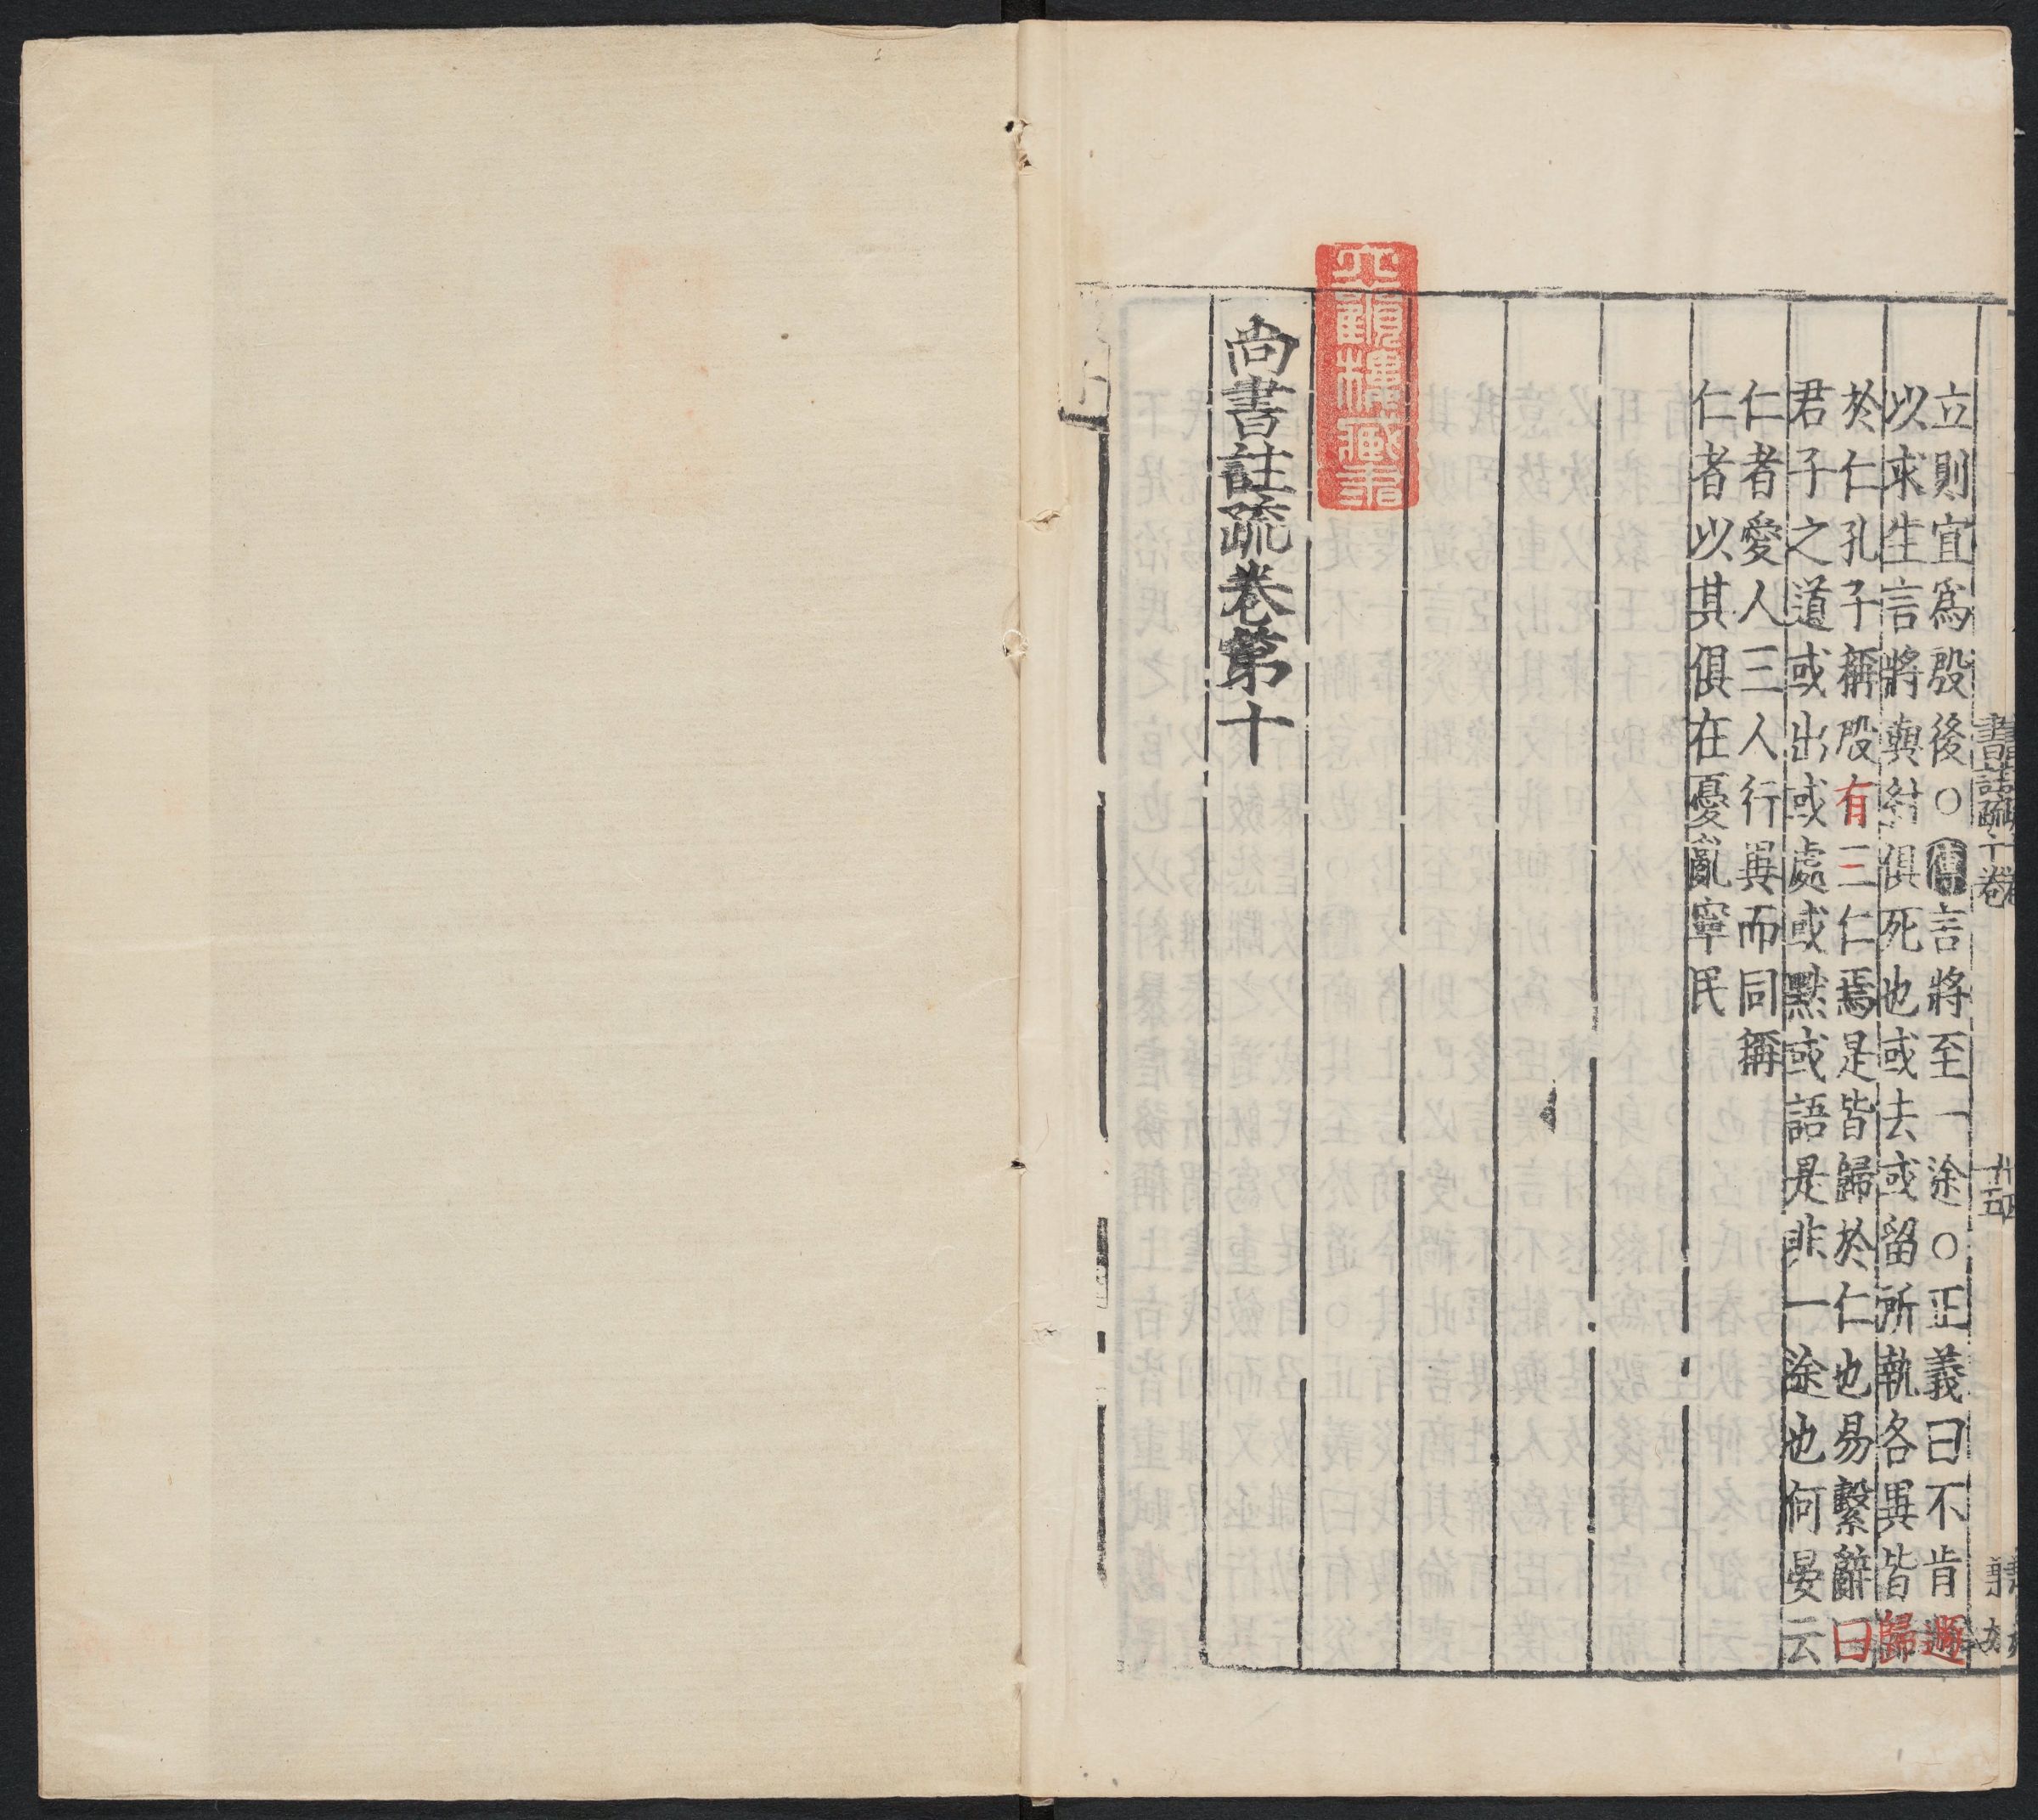 立則宜爲殷後○傳言將至一途○正義曰不肯遯
以求生言將與紂俱死也或去或留所執各異皆歸
於仁孔子稱殷有三仁焉是皆歸於仁也易繫辭曰
君子之道或出或處或默或語是非一途也何晏云
仁者愛人三人行異而同稱
仁者以其俱在憂亂寧民
尚書註疏卷第十
六顧樓藏書
書註疏十卷